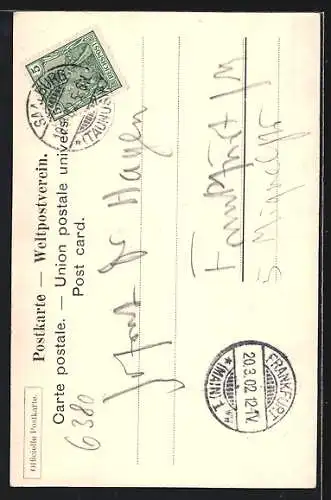 Postkarte — Weltpostverein.
Carte postale. — Union postale universelle
Post card.
Officielle Postkarte.
SAALBURG
(TAUNUS)
5
REICHSPOST
Hagen
Frankfurt
5
6380
FRANKFURT
20.3.02.12-1V.
* (MAIN) 1 *